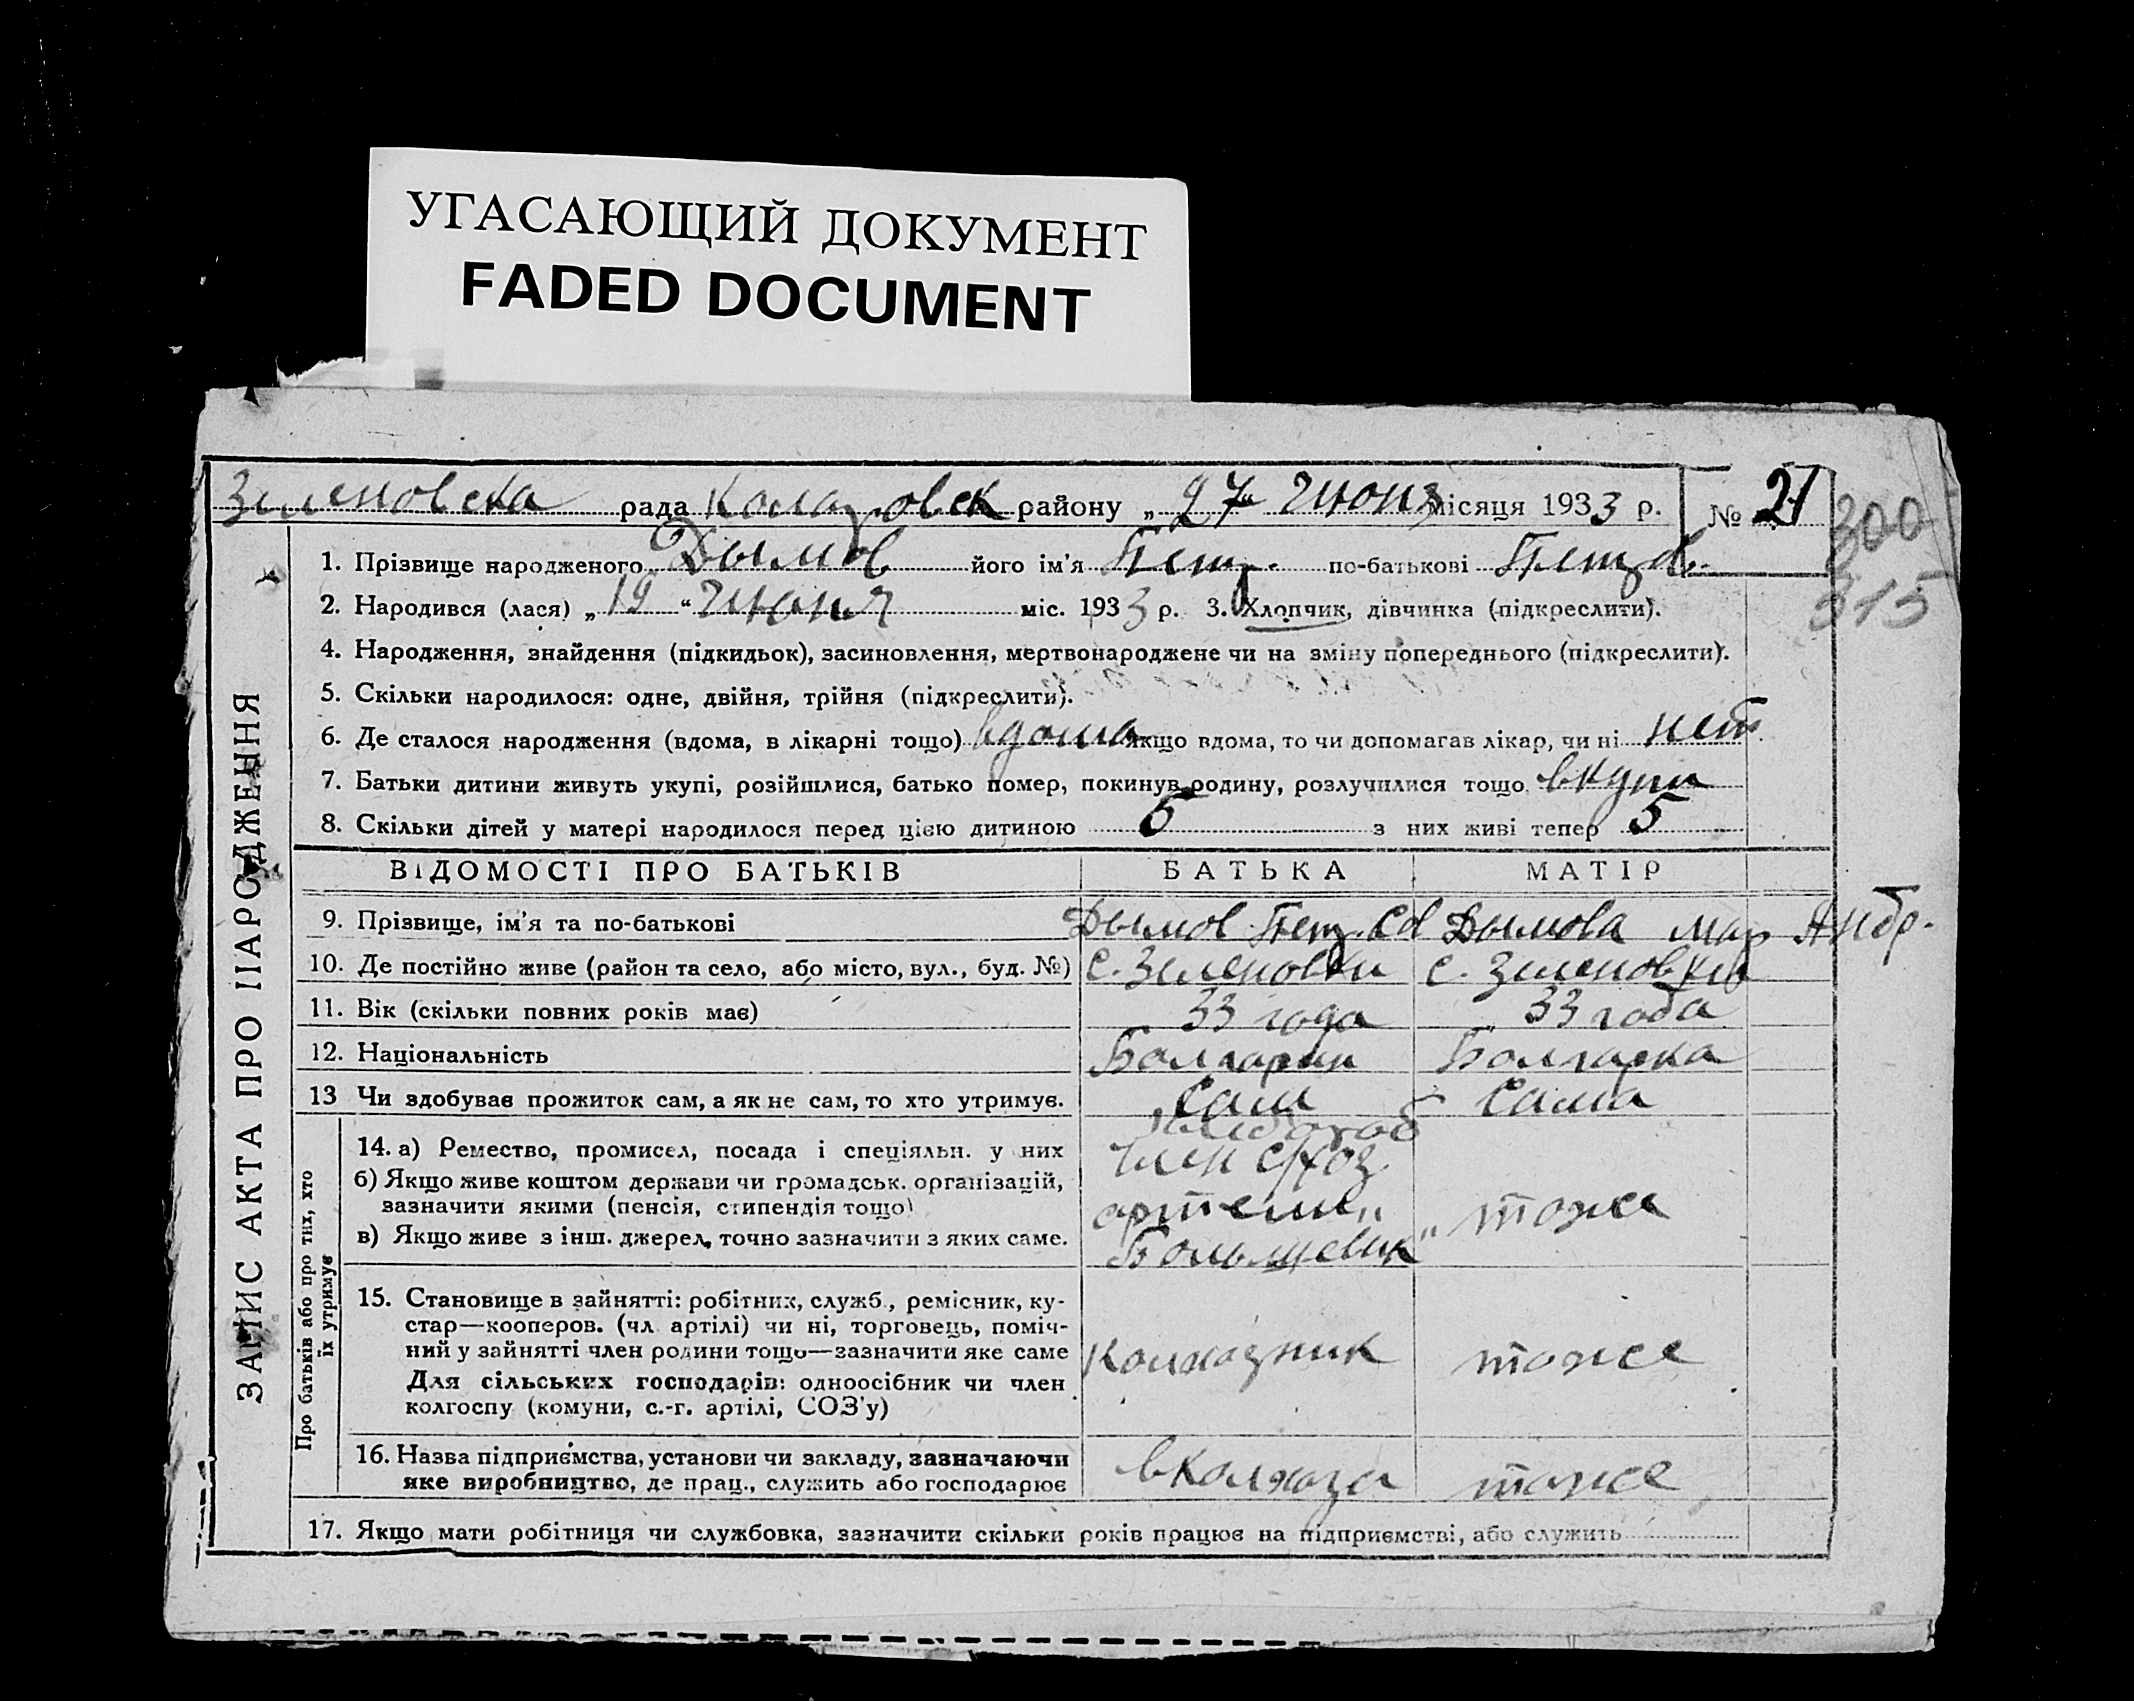 УГАСАЮЩИЙ ДОКУМЕНТ
FADED DOCUMENT
Зеленовска рада Коларовск району „ 27 “ Июня місяця 1933 р. № 21
300
315
ЗАПИС АКТА ПРО НАРОДЖЕННЯ
1. Прізвище народженого Дымов його ім'я Петр. по-батькові Петров.
2. Народився (лася) „ 19 “ Июня міс. 1933 р. 3. Хлопчик, дівчинка (підкреслити).
4. Народження, знайдення (підкидьок), засиновлення, мертвонароджене чи на зміну попереднього (підкреслити).
5. Скільки народилося: одне, двійня, трійня (підкреслити).
6. Де сталося народження (вдома, в лікарні тощо) вдома якщо вдома, то чи допомагав лікар, чи ні нет
7. Батьки дитини живуть укупі, розійшлися, батько помер, покинув родину, розлучилися тощо вкупи
8. Скільки дітей у матері народилося перед цією дитиною 6 з них живі тепер 5
ВІДОМОСТІ ПРО БАТЬКІВ БАТЬКА МАТІР
9. Прізвище, ім'я та по-батькові Дымов Петр. Дымова Мар Андр.
10. Де постійно живе (район та село, або місто, вул., буд. №) с. Зеленовки с. Зеленовки
11. Вік (скільки повних років має) 33 года 33 года
12. Національність Болгарин Болгарка
13 Чи здобуває прожиток сам, а як не сам, то хто утримує. Сам Сама
Про батьків або про тих, хто
їх утримує
14. а) Ремество, промисел, посада і спеціяльн. у них Хлебороб
член с/хоз.
б) Якщо живе коштом держави чи громадськ. організацій,
зазначити якими (пенсія, стипендія тощо) артели „ тоже
в) Якщо живе з інш. джерел, точно зазначити з яких саме. Большевик“
15. Становище в зайнятті: робітник, служб., ремісник, ку-
стар—кооперов. (чл. артілі) чи ні, торговець, поміч-
ний у зайнятті член родини тощо—зазначити яке саме Колхозник тоже
Для сільських господарів: одноосібник чи член
колгоспу (комуни, с.-г. артілі, СОЗ'у)
16. Назва підприємства, установи чи закладу, зазначаючи
яке виробництво, де прац., служить або господарює в Колхоза тоже
17. Якщо мати робітниця чи службовка, зазначити скільки років працює на підприємстві, або служить